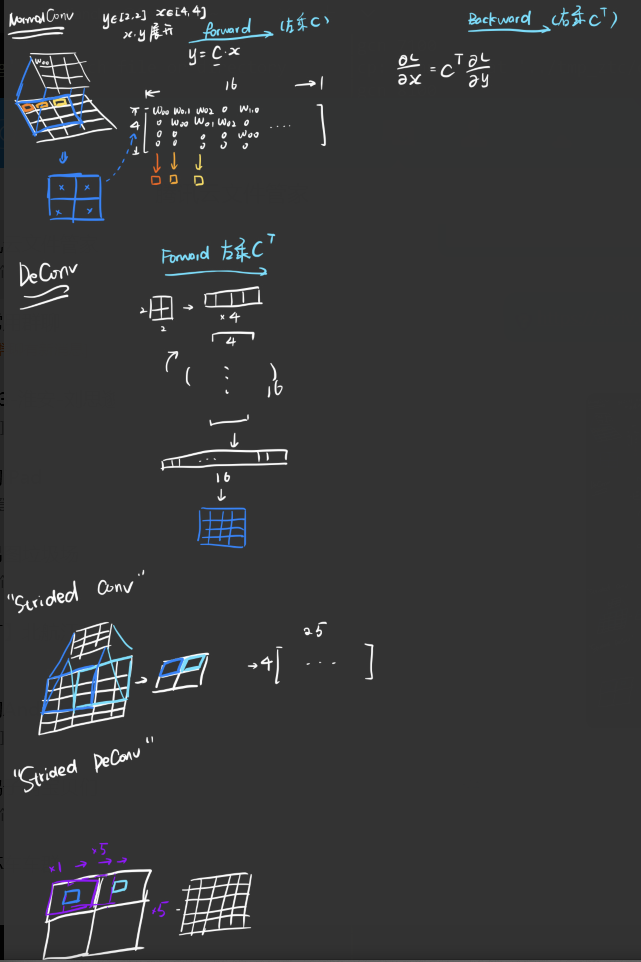 NormalConv
y∈[2,2] x∈[4,4]
x.y展开
forward (左乘C)
y = C·x
Backward (左乘Cᵀ)
∂L/∂x = Cᵀ ∂L/∂y
w00
16
1
4
w00 w0,1 w02 0 w1,0
0 w00 w0,1 w02 0
0 0 0 0 w00
0 0 0 0 0
....
x x
x x
DeConv
Forward 左乘Cᵀ
2
2
×4
4
16
...
16
"Strided Conv"
25
4
...
"Strided DeConv"
×1
×5
×5